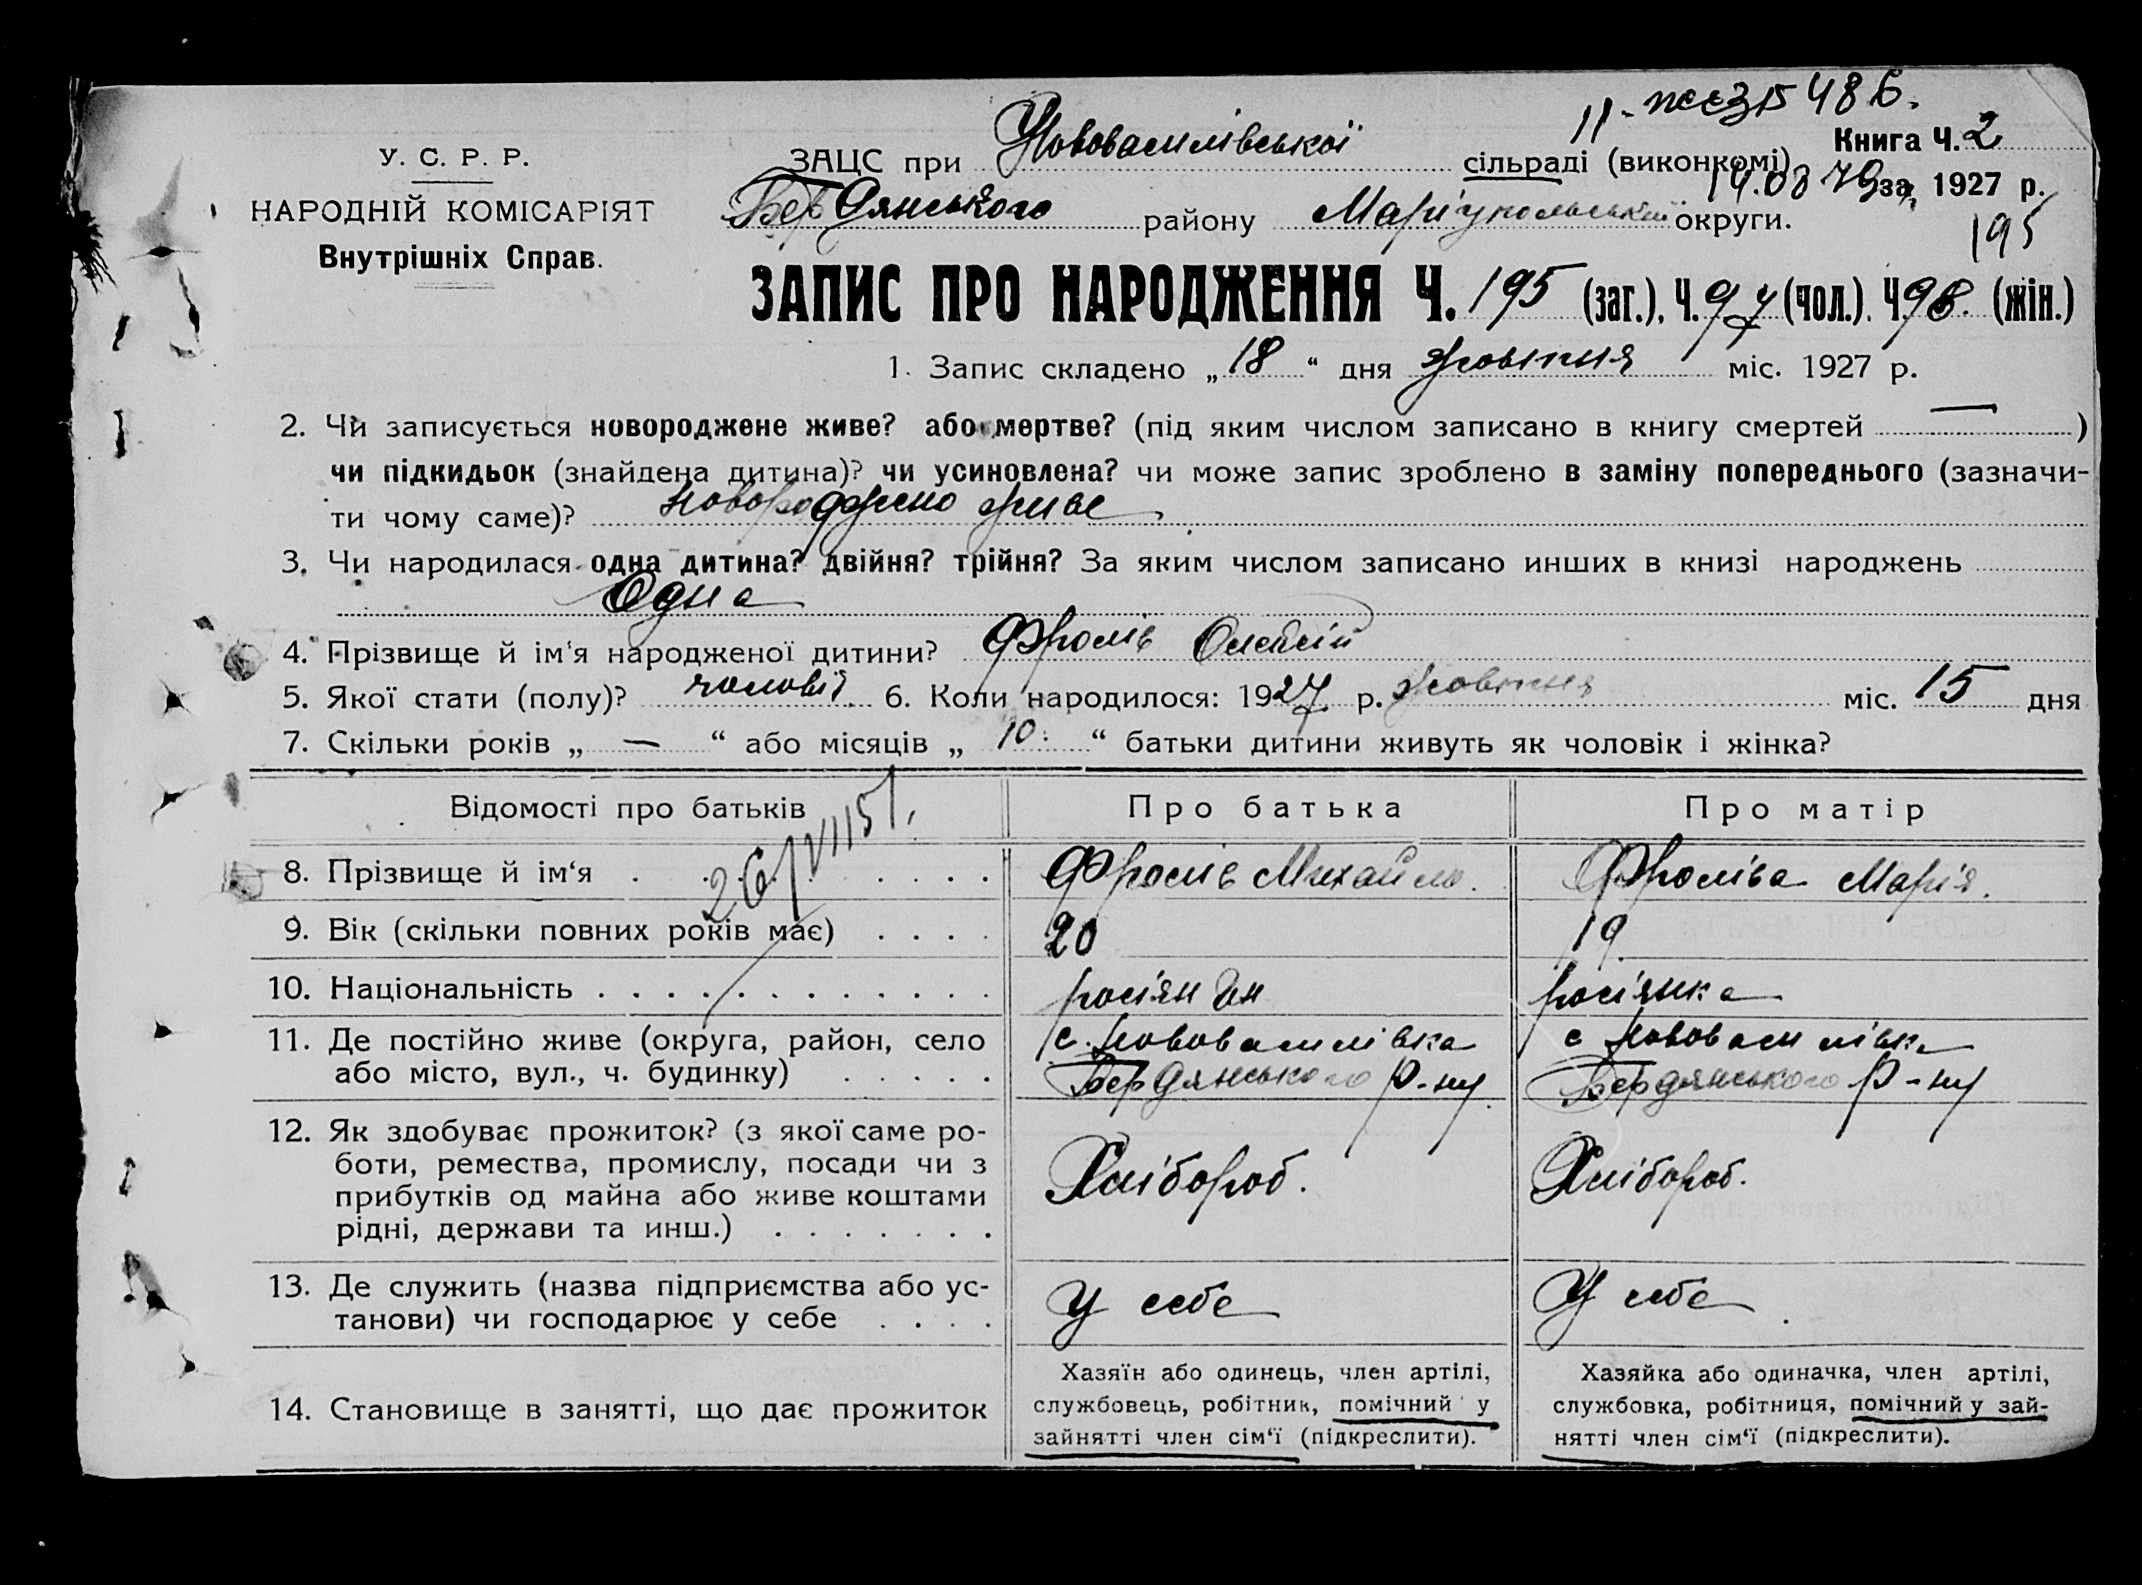 У. С. Р. Р.
НАРОДНІЙ КОМІСАРІЯТ
Внутрішніх Справ.
486.
Книга Ч. 2
ЗАЦС при Нововасилівської сільраді (виконкомі)
за 1927 р.
Бердянського району Маріупольської округи.
195
ЗАПИС ПРО НАРОДЖЕННЯ Ч. 195 (заг.), Ч. 97 (чол.). Ч. 98. (жін.)
1. Запис складено „ 18 “ дня жовтня міс. 1927 р.
2. Чи записується новороджене живе? або мертве? (під яким числом записано в книгу смертей — )
чи підкидьок (знайдена дитина)? чи усиновлена? чи може запис зроблено в заміну попереднього (зазначи-
ти чому саме)? новороджено живе
3. Чи народилася одна дитина? двійня? трійня? За яким числом записано инших в книзі народжень
Одна
4. Прізвище й ім'я народженої дитини? Фролів Олексій
5. Якої стати (полу)? чоловіч. 6. Коли народилося: 1927 р. жовтня міс. 15 дня
7. Скільки років „ — “ або місяців „ 10. “ батьки дитини живуть як чоловік і жінка?
Відомості про батьків
Про батька
Про матір
26/VII 51.
8. Прізвище й ім‘я . . . . . . . . .
Фролів Михайло.
Фроліва Марія.
9. Вік (скільки повних років має) . . . .
20
19
10. Національність . . . . . . . . . . . . .
росіянин
росіянка
11. Де постійно живе (округа, район, село
або місто, вул., ч. будинку) . . . . .
с. Нововасилівка
Бердянського р-ну
с Нововасилівка
Бердянського р-ну
12. Як здобуває прожиток? (з якої саме ро-
боти, ремества, промислу, посади чи з
прибутків од майна або живе коштами
рідні, держави та инш.) . . . . . . .
Хлібороб.
Хлібороб.
13. Де служить (назва підприємства або ус-
танови) чи господарює у себе . . . .
У себе
У себе
14. Становище в занятті, що дає прожиток
Хазяїн або одинець, член артілі,
службовець, робітник, помічний у
зайнятті член сім‘ї (підкреслити).
Хазяйка або одиначка, член артілі,
службовка, робітниця, помічний у зай-
нятті член сім‘ї (підкреслити).